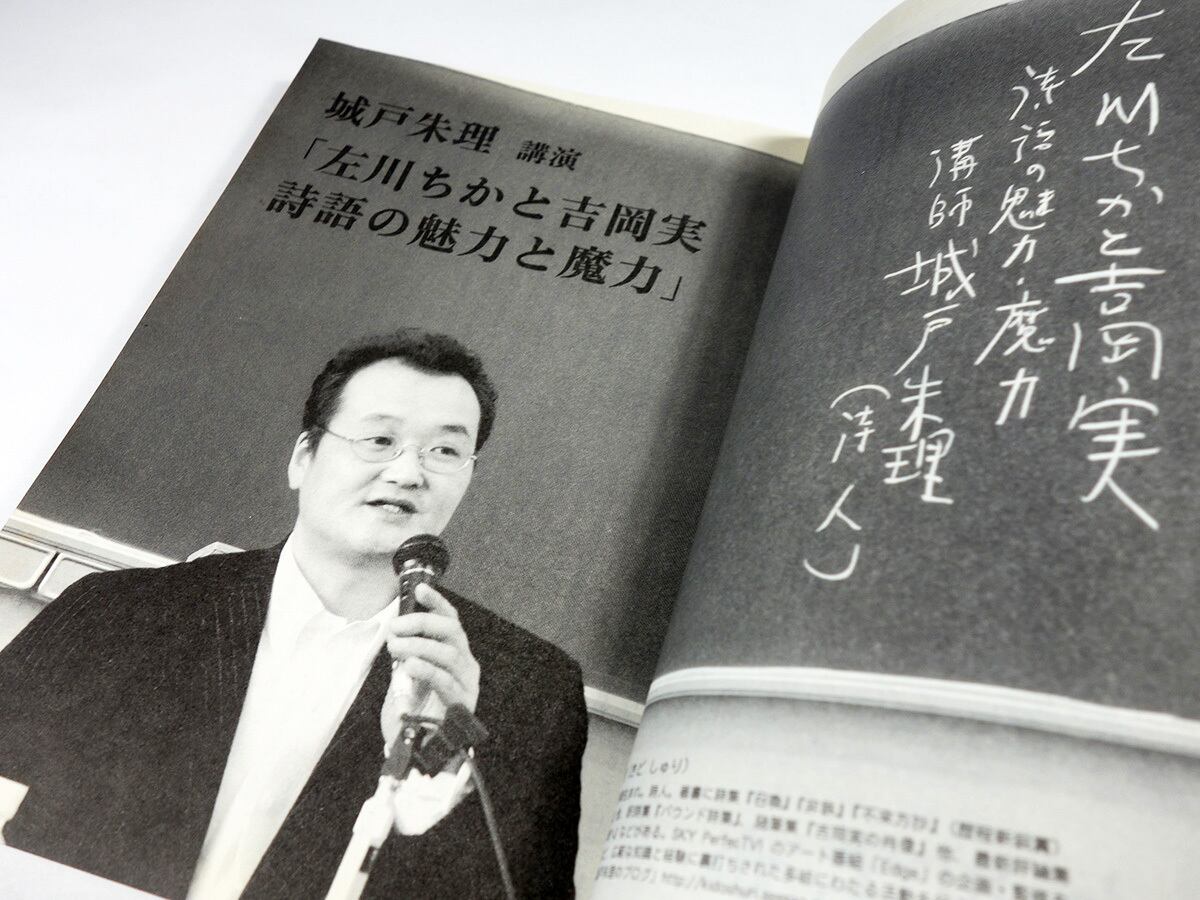 城戸朱理 講演
「左川ちかと吉岡実
詩語の魅力と魔力」
左川ちかと吉岡実
詩語の魅力・魔力
講師 城戸朱理
(詩人)
きど しゅり)
詩人。著書に詩集『召喚』『非鉄』『不来方抄』(歴程新鋭賞)
訳詩集『パウンド詩集』、随筆集『吉岡実の肖像』他、最新評論集
などがある。SKY PerfecTV! のアート番組「Edge」の企画・監修
広範な知識と経験に裏打ちされた多岐にわたる主動
のブログ」http://kidoshuri.